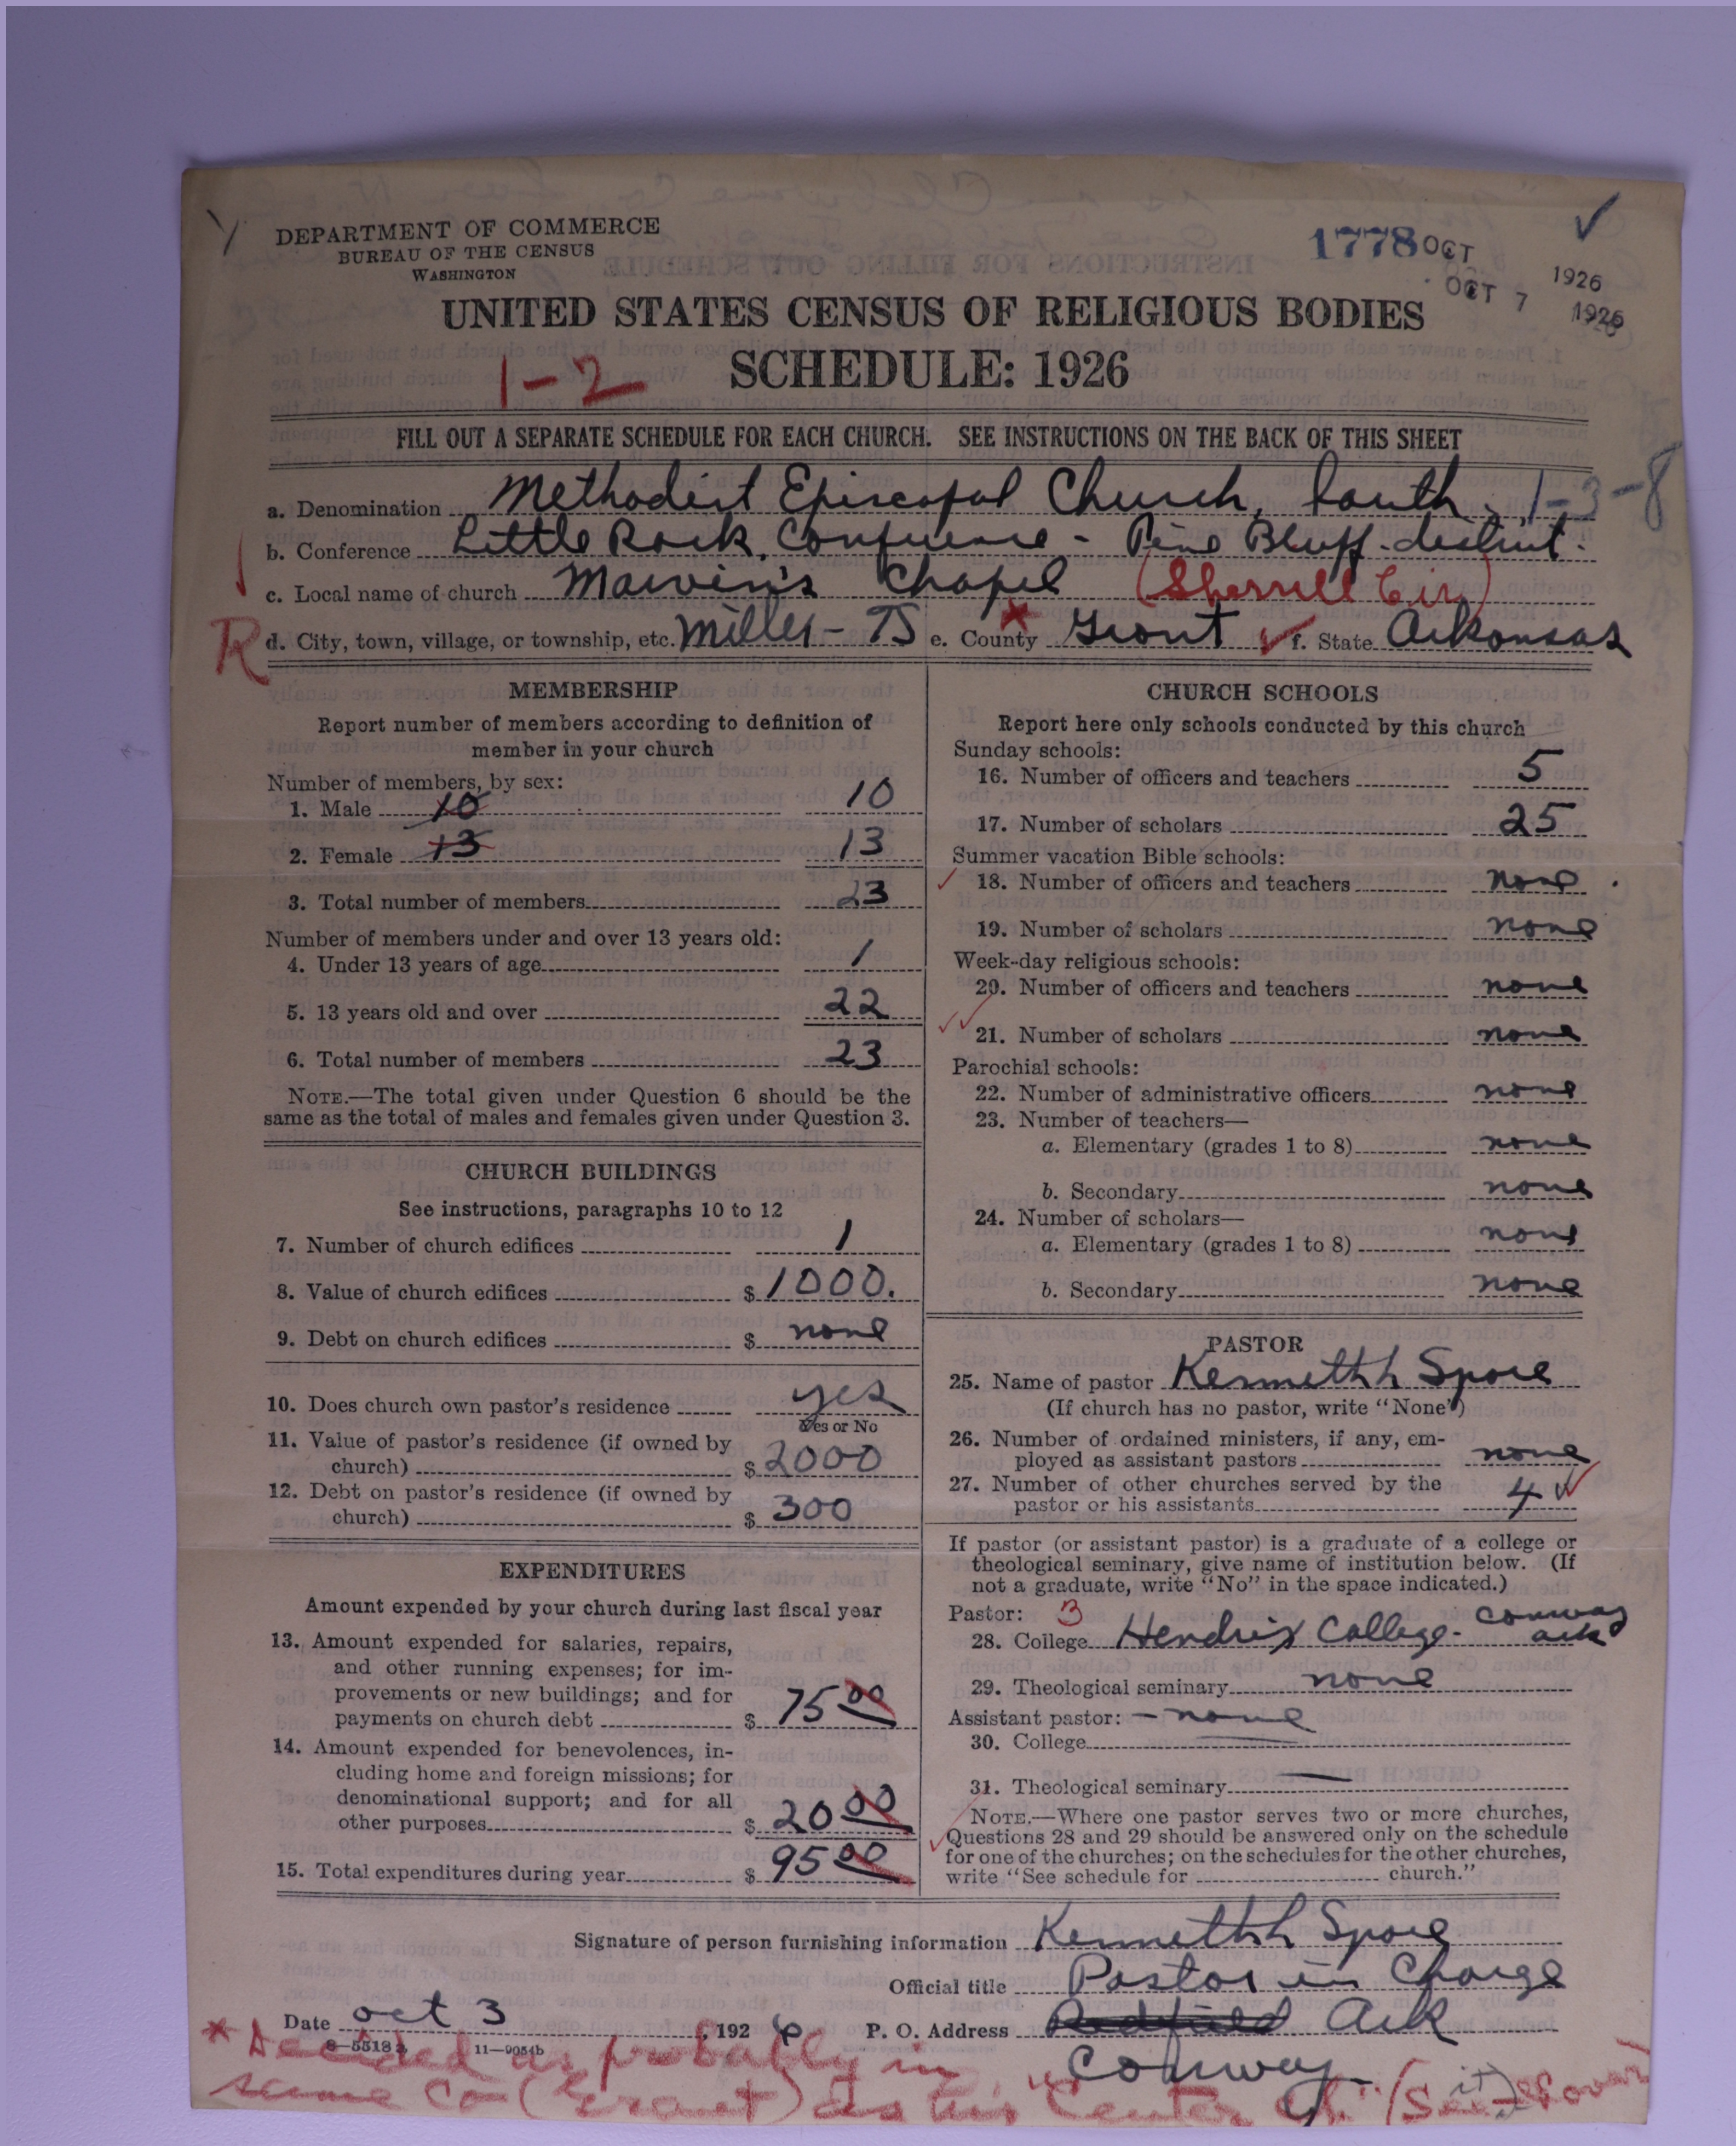 DEPARTMENT OF COMMERCE
BUREAU OF THE CENSUS
WASHINGTON
1778 OCT 1926
OCT 7 1926
UNITED STATES CENSUS OF RELIGIOUS BODIES
1-2 SCHEDULE: 1926
FILL OUT A SEPARATE SCHEDULE FOR EACH CHURCH. SEE INSTRUCTIONS ON THE BACK OF THIS SHEET
a. Denomination Methodist Episcopal Church, South. 1-3-8
b. Conference Little Rock Conference - Pine Bluff district.
c. Local name of church Marvin's Chapel (Sherrill Cir)
R d. City, town, village, or township, etc. Miller - TS e. County Grant f. State Arkansas
MEMBERSHIP
Report number of members according to definition of
member in your church
Number of members, by sex:
1. Male 10 10
2. Female 13 13
3. Total number of members 23
Number of members under and over 13 years old:
4. Under 13 years of age 1
5. 13 years old and over 22
6. Total number of members 23
NOTE.—The total given under Question 6 should be the
same as the total of males and females given under Question 3.
CHURCH BUILDINGS
See instructions, paragraphs 10 to 12
7. Number of church edifices 1
8. Value of church edifices $ 1000.
9. Debt on church edifices $ none
10. Does church own pastor's residence yes
Yes or No
11. Value of pastor's residence (if owned by
church) $ 2000
12. Debt on pastor's residence (if owned by
church) $ 300
EXPENDITURES
Amount expended by your church during last fiscal year
13. Amount expended for salaries, repairs,
and other running expenses; for im-
provements or new buildings; and for
payments on church debt $ 75 00
14. Amount expended for benevolences, in-
cluding home and foreign missions; for
denominational support; and for all
other purposes $ 20 00
15. Total expenditures during year $ 95 00
CHURCH SCHOOLS
Report here only schools conducted by this church
Sunday schools:
16. Number of officers and teachers 5
17. Number of scholars 25
Summer vacation Bible schools:
18. Number of officers and teachers none
19. Number of scholars none
Week-day religious schools:
20. Number of officers and teachers none
21. Number of scholars none
Parochial schools:
22. Number of administrative officers none
23. Number of teachers—
a. Elementary (grades 1 to 8) none
b. Secondary none
24. Number of scholars—
a. Elementary (grades 1 to 8) none
b. Secondary none
PASTOR
25. Name of pastor Kenneth Spore
(If church has no pastor, write "None")
26. Number of ordained ministers, if any, em-
ployed as assistant pastors none
27. Number of other churches served by the
pastor or his assistants 4
If pastor (or assistant pastor) is a graduate of a college or
theological seminary, give name of institution below. (If
not a graduate, write "No" in the space indicated.)
Pastor: 3
28. College Hendrix College - Conway Ark
29. Theological seminary none
Assistant pastor: - none
30. College
31. Theological seminary
NOTE.—Where one pastor serves two or more churches,
Questions 28 and 29 should be answered only on the schedule
for one of the churches; on the schedules for the other churches,
write "See schedule for church."
Signature of person furnishing information Kenneth Spore
Official title Pastor in Charge
Date Oct 3, 1926 P. O. Address Redfield Ark
8-5518 11-9054b
Conway
* Decided as probably in
same Co (Grant) as his "Center Ch." (See it over)